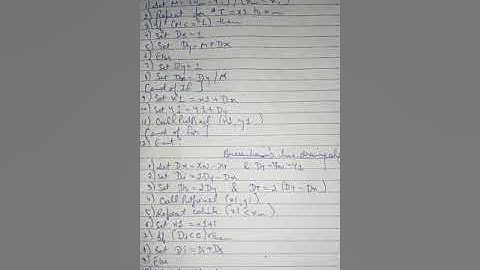 2) Repeat for I = x1 to xm
3) If (M <= 1) then
4) Set Dx = 1
5) Set Dy = M * Dx
6) Else
7) Set Dy = 1
8) Set Dx = Dy / M
[end of If]
9) Set x1 = x1 + Dx
10) Set y1 = y1 + Dy
11) Call PutPixel (x1, y1)
[end of for]
Exit
Bresenham's line drawing
1) Set Dx = xn - x1 & Dy = yn - y1
2) Set Di = 2Dy - Dx
3) Set Ds = 2Dy & Dt = 2 (Dy - Dx)
4) Call PutPixel (x1, y1)
5) Repeat while (x1 < xm)
6) Set x1 = x1 + 1
7) If (Di < 0) then
8) Set Di = Di + Ds
9) Else